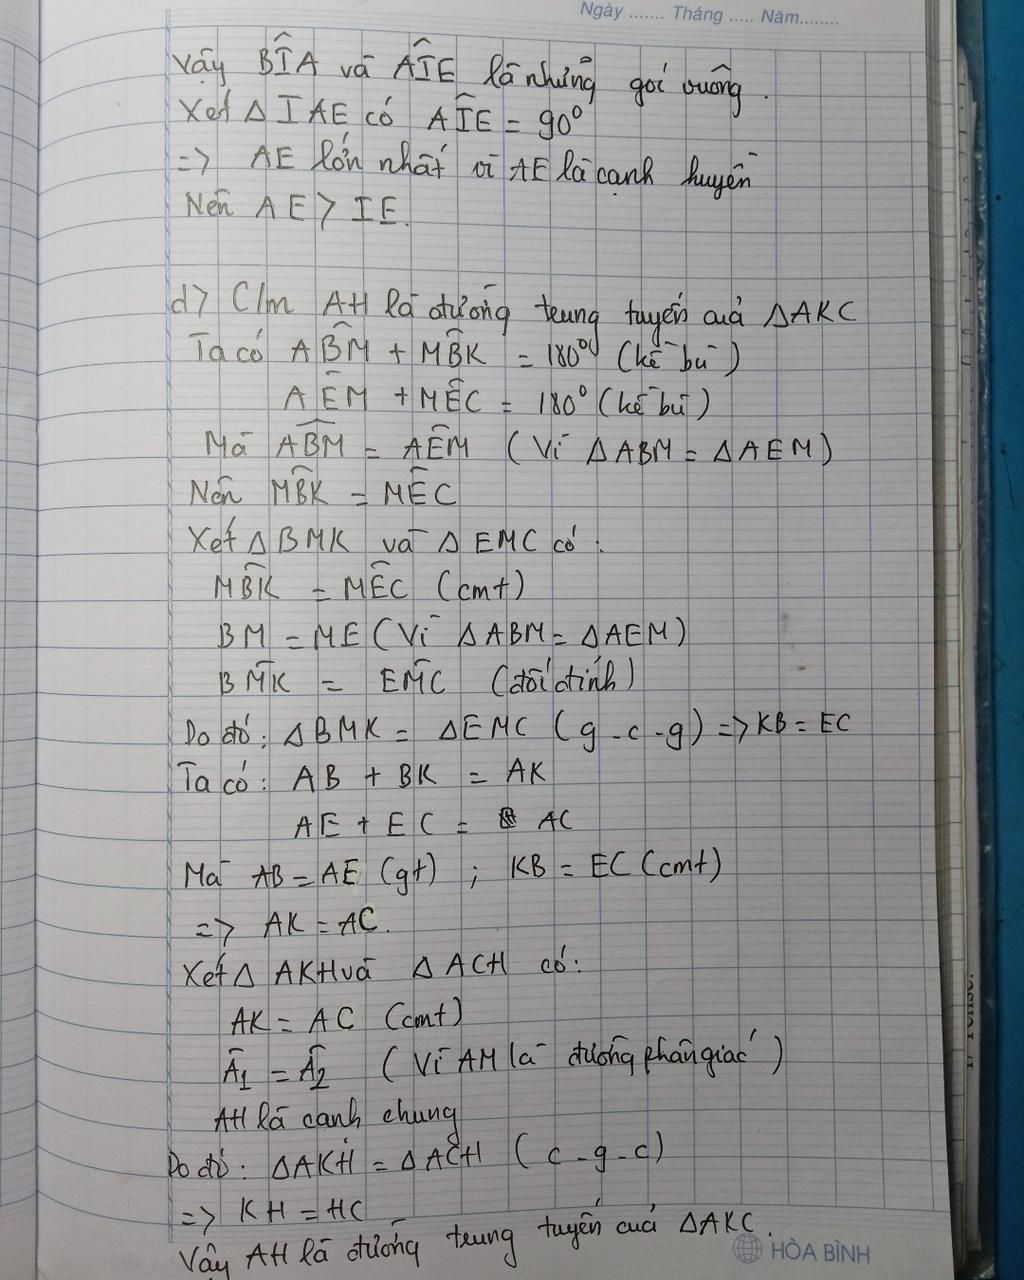 Ngày ....... Tháng ..... Năm........
Vậy BÎA và AÎE là những góc vuông.
Xét Δ IAE có AÎE = 90°
=> AE lớn nhất vì AE là cạnh huyền
Nên AE > IE.
d> C/m AH là đường trung tuyến của ΔAKC
Ta có AB̂M + MB̂K = 180° (kề bù)
AÊM + MÊC = 180° (kề bù)
Mà AB̂M = AÊM (Vì ΔABM = ΔAEM)
Nên MB̂K = MÊC
Xét Δ BMK và Δ EMC có:
MB̂K = MÊC (cmt)
BM = ME (Vì ΔABM = ΔAEM)
BM̂K = EM̂C (đối đỉnh)
Do đó: ΔBMK = ΔEMC (g-c-g) => KB = EC
Ta có: AB + BK = AK
AE + EC = AC
Mà AB = AE (gt) ; KB = EC (cmt)
=> AK = AC.
Xét Δ AKH và Δ ACH có:
AK = AC (cmt)
Â1 = Â2 (Vì AM là đường phân giác)
AH là cạnh chung
Do đó: ΔAKH = ΔACH (c-g-c)
=> KH = HC
Vậy AH là đường trung tuyến của ΔAKC.
HÒA BÌNH